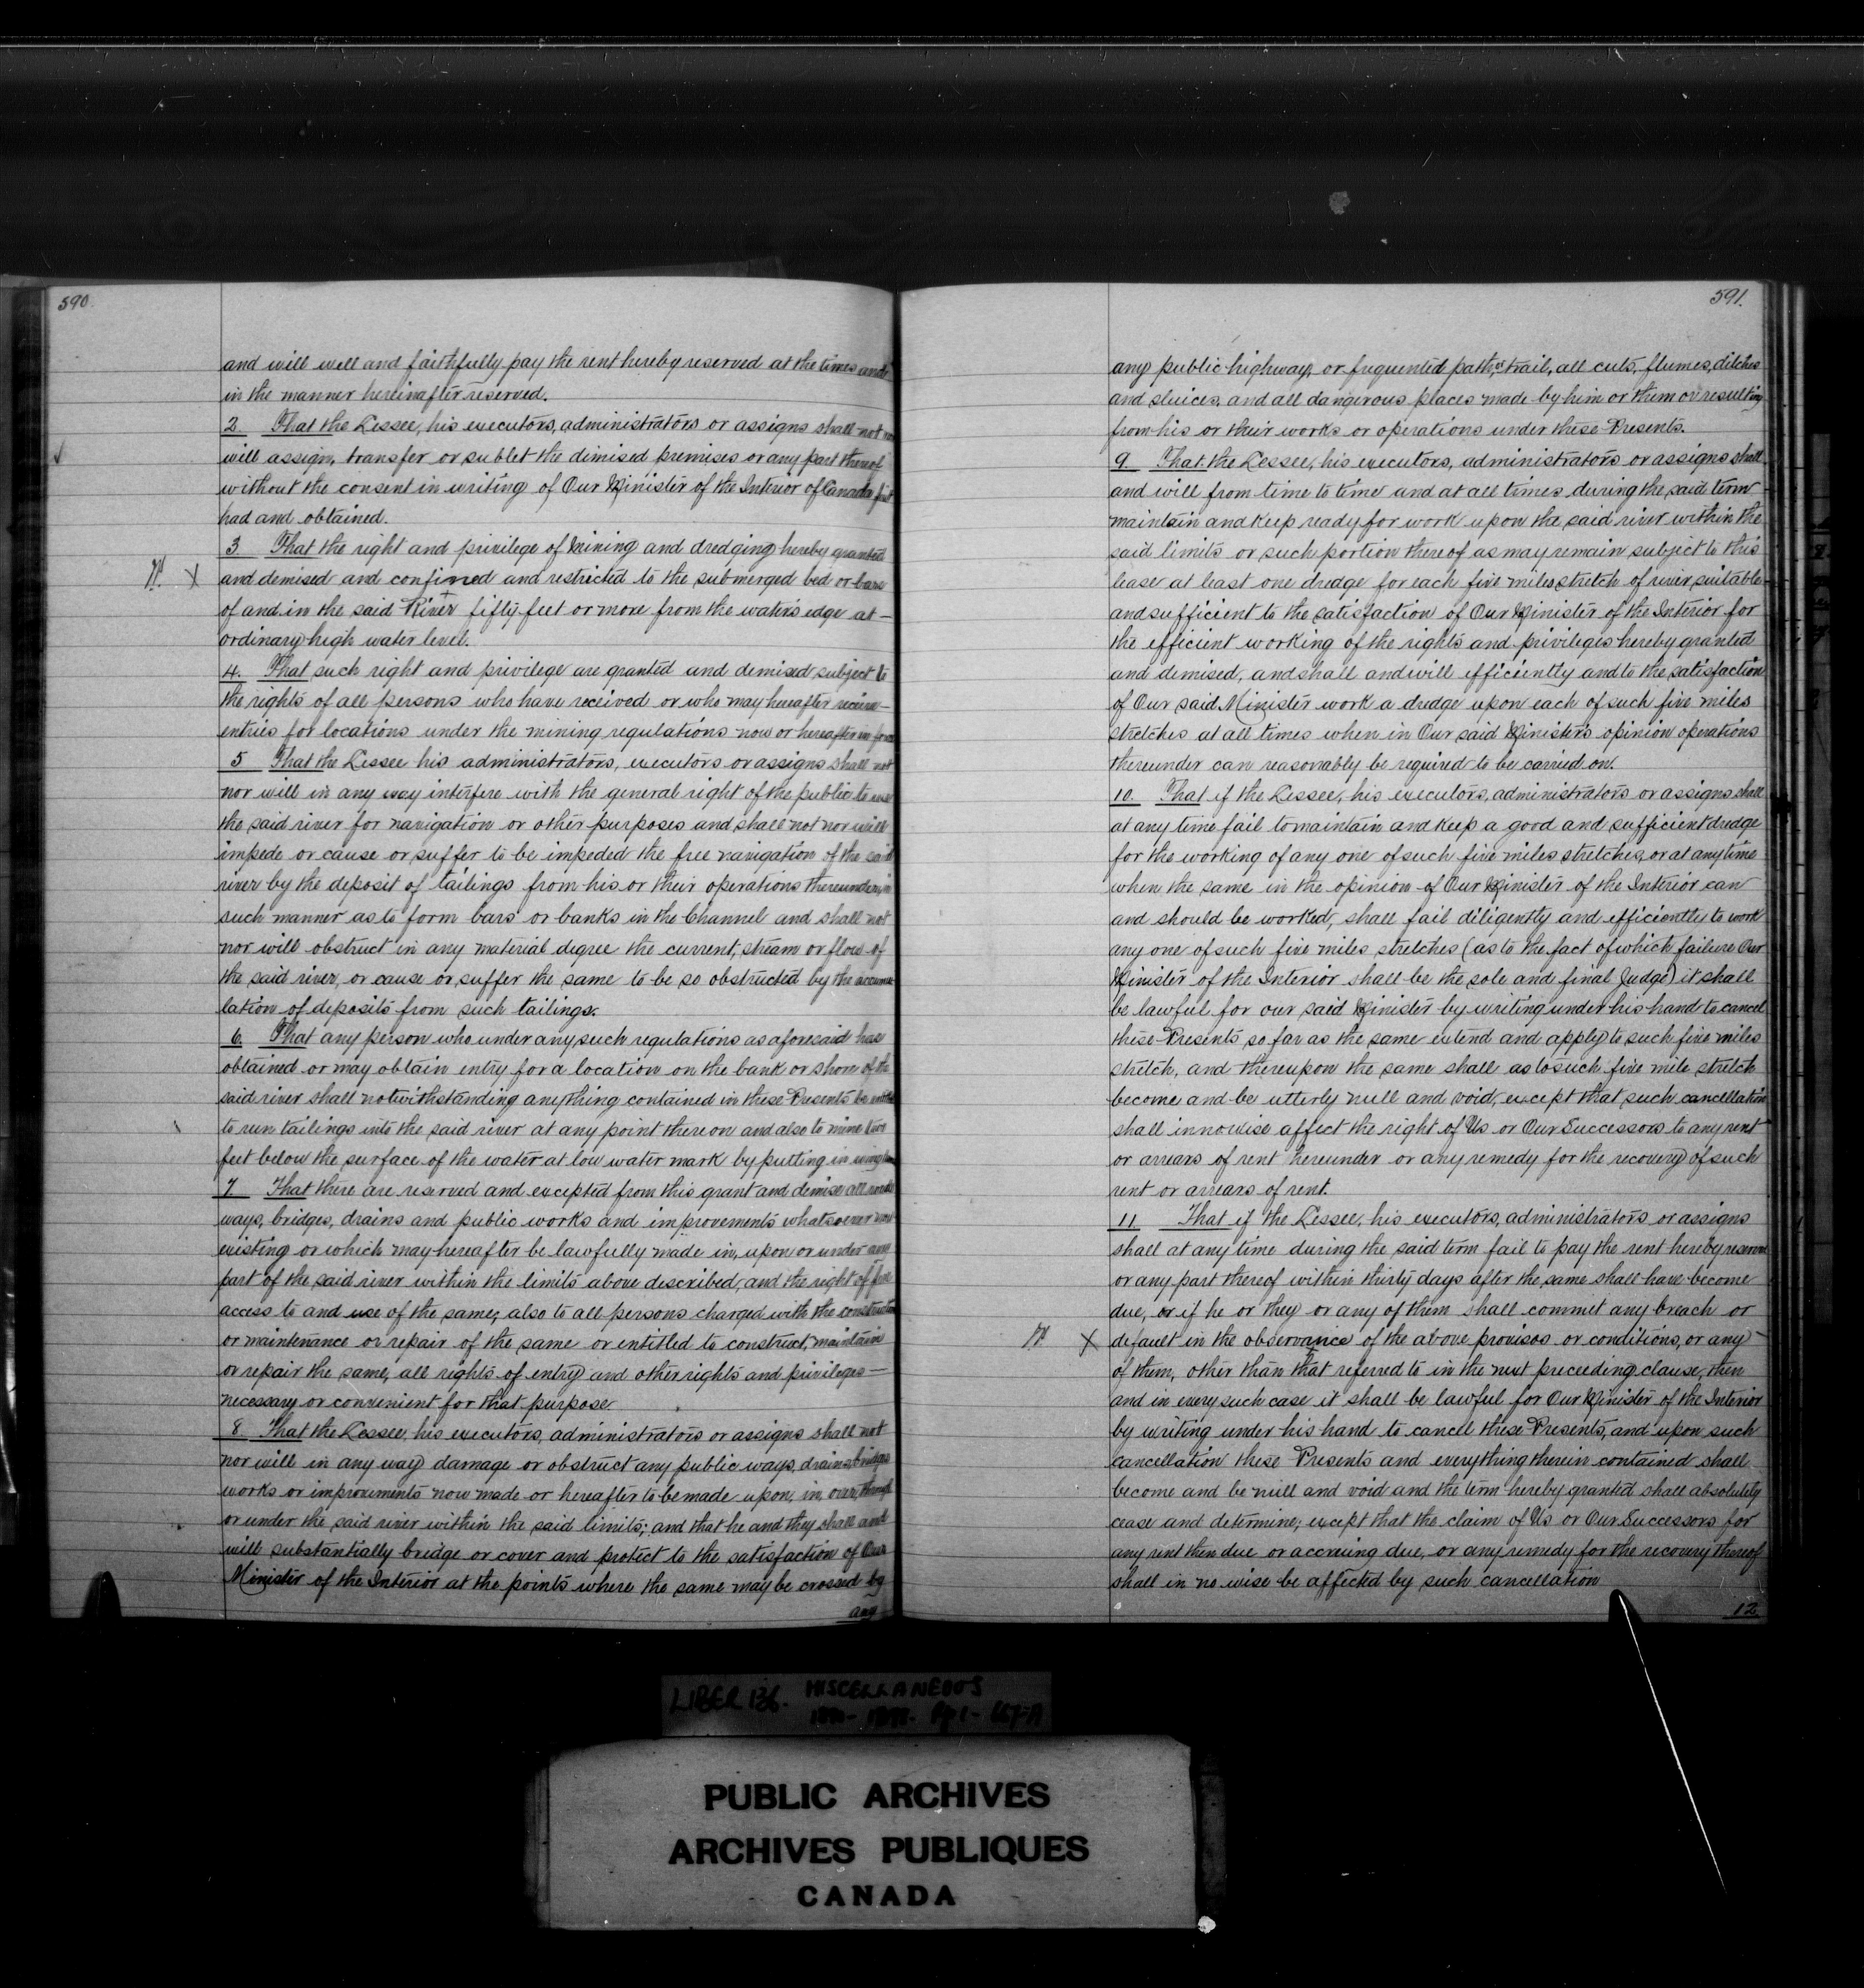 590.
and will well and faithfully pay the rent hereby reserved at the times and
in the manner hereinafter reserved.
2. That the Lessee, his executors, administrators or assigns shall not nor
will assign, transfer or sublet the dimised premises or any part thereof
without the consent in writing of Our Minister of the Interior of Canada first
had and obtained.
3. That the right and privilege of Mining and dredging hereby granted
X and demised and confined and restricted to the submerged bed or bars
of and in the said River fifty feet or more from the water's edge at
ordinary high water level.
4. That such right and privilege are granted and demised subject to
the rights of all persons who have received or who may hereafter receive
entries for locations under the mining regulations now or hereafter in force
5 That the Lessee his administrators, executors or assigns shall not
nor will in any way interfere with the general right of the public to use
the said river for navigation or other purposes and shall not nor will
impede or cause or suffer to be impeded the free navigation of the said
river by the deposit of tailings from his or their operations thereunder, in
such manner as to form bars or banks in the Channel and shall not
nor will obstruct in any material degree the current, stream or flow of
the said river, or cause or suffer the same to be so obstructed by the accumu
lation of deposits from such tailings.
6. That any person who under any such regulations as aforesaid has
obtained or may obtain entry for a location on the bank or shore of the
said river shall notwithstanding anything contained in these Presents be entitled
to run tailings into the said river at any point thereon and also to mine two
feet below the surface of the water at low water mark by putting in
7. That there are reserved and excepted from this grant and demise all roads
ways, bridges, drains and public works and improvements whatsoever now
existing or which may hereafter be lawfully made in, upon or under any
part of the said river within the limits above described, and the right of free
access to and use of the same, also to all persons charged with the construction
or maintenance or repair of the same or entitled to construct, maintain
or repair the same, all rights of entry and other rights and privileges
necessary or convenient for that purpose
8. That the Lessee, his executors, administrators or assigns shall not
nor will in any way damage or obstruct any public ways, drains, bridges
works or improvements now made or hereafter to be made upon, in, over, through
or under the said river within the said limits; and that he and they shall and
will substantially bridge or cover and protect to the satisfaction of Our
Minister of the Interior at the points where the same may be crossed by
any
591.
any public highway, or frequented path, or trail, all cuts, flumes, ditches
and sluices, and all dangerous places made by him or them or resulting
from his or their works or operations under these Presents.
9. That the Lessee, his executors, administrators or assigns shall
and will from time to time and at all times during the said term
maintain and keep ready for work upon the said river within the
said limits or such portion thereof as may remain subject to this
lease at least one dredge for each five miles stretch of river suitable
and sufficient to the satisfaction of Our Minister of the Interior for
the efficient working of the rights and privileges hereby granted
and demised, and shall and will efficiently and to the satisfaction
of Our said Minister work a dredge upon each of such five miles
stretches at all times when in Our said Minister's opinion operations
thereunder can reasonably be required to be carried on.
10. That if the Lessee, his executors, administrators or assigns shall
at any time fail to maintain and keep a good and sufficient dredge
for the working of any one of such five miles stretches, or at any time
when the same in the opinion of Our Minister of the Interior can
and should be worked, shall fail diligently and efficiently to work
any one of such five miles stretches (as to the fact of which failure Our
Minister of the Interior shall be the sole and final Judge) it shall
be lawful for our said Minister by writing under his hand to cancel
these Presents so far as the same extend and apply to such five miles
stretch, and thereupon the same shall as to such five mile stretch
become and be utterly null and void, except that such cancellation
shall in nowise affect the right of Us or Our Successors to any rent
or arrears of rent hereunder or any remedy for the recovery of such
rent or arrears of rent.
11 That if the Lessee, his executors, administrators or assigns
shall at any time during the said term fail to pay the rent hereby reserved
or any part thereof within thirty days after the same shall have become
due, or if he or they or any of them shall commit any breach or
X default in the observance of the above provisos or conditions, or any
of them, other than that referred to in the next preceeding clause, then
and in every such case it shall be lawful for Our Minister of the Interior
by writing under his hand to cancel these Presents, and upon such
cancellation these Presents and everything therein contained shall
become and be null and void and the term hereby granted shall absolutely
cease and determine, except that the claim of Us or Our Successors for
any rent then due or accruing due, or any remedy for the recovery thereof
shall in no wise be affected by such cancellation
12
LIBER 136. MISCELLANEOUS
PUBLIC ARCHIVES
ARCHIVES PUBLIQUES
CANADA